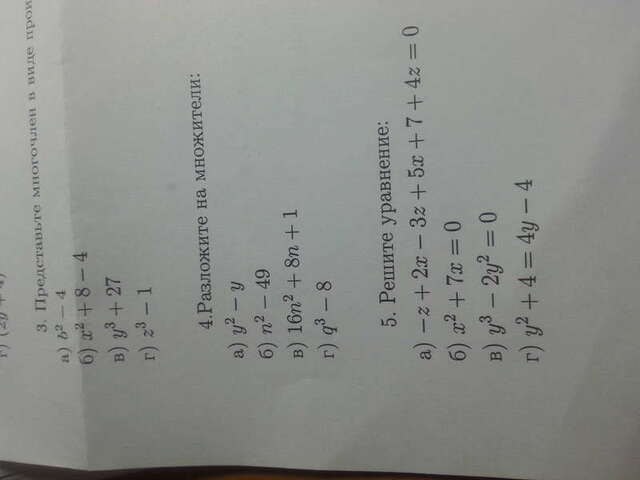 г) (2y + 4)
3. Представьте многочлен в виде прои
а) b² − 4
б) x² + 8 − 4
в) y³ + 27
г) z³ − 1
4.Разложите на множители:
а) y² − y
б) n² − 49
в) 16n² + 8n + 1
г) q³ − 8
5. Решите уравнение:
а) −z + 2x − 3z + 5x + 7 + 4z = 0
б) x² + 7x = 0
в) y³ − 2y² = 0
г) y² + 4 = 4y − 4